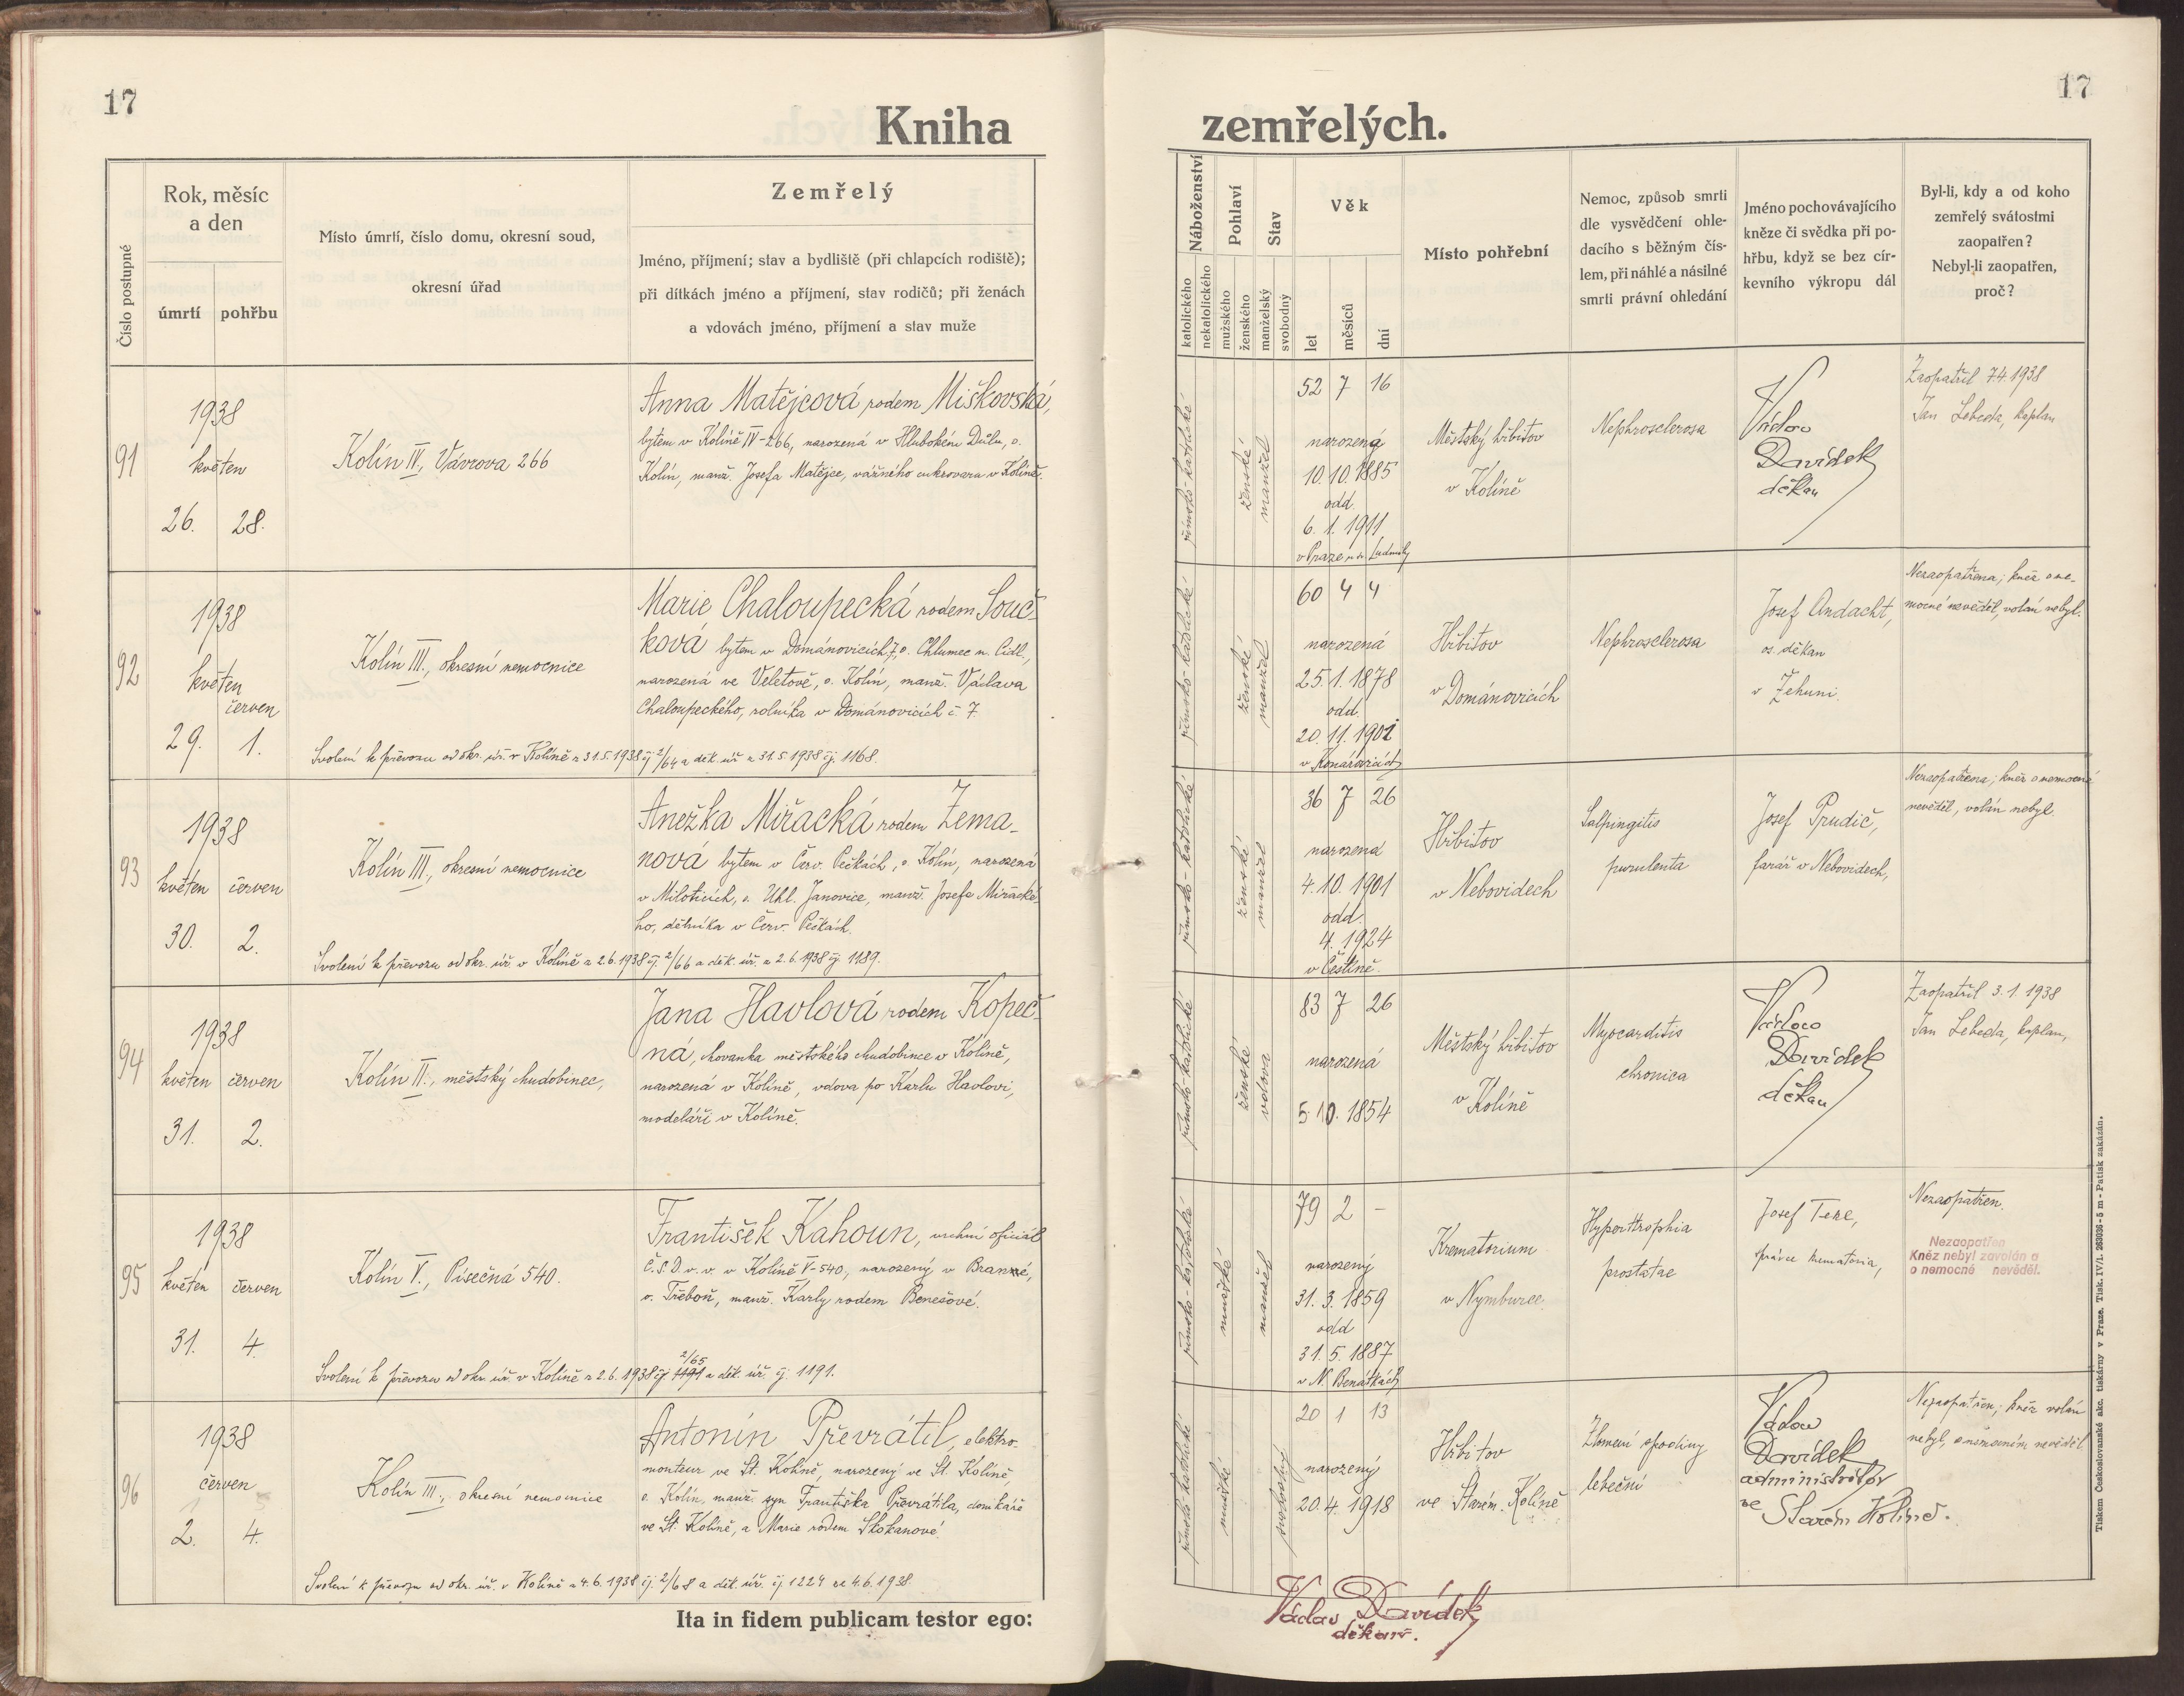 17
Kniha
Číslo postupné
Rok, měsíc
a den
úmrtí
pohřbu
Místo úmrtí, číslo domu, okresní soud,
okresní úřad
Zemřelý
Jméno, příjmení; stav a bydliště (při chlapcích rodiště);
při dítkách jméno a příjmení, stav rodičů; při ženách
a vdovách jméno, příjmení a stav muže
91
1938
květen
26. 28.
Kolín IV., Vávrova 266
Anna Matějcová rodem Miškovská,
bytem v Kolíně IV-266, narozená v Hlubokém Důlu, o.
Kolín, manž. Josefa Matějce, vážného cukrovaru v Kolíně.
92
1938
květen
červen
29. 1.
Kolín III., okresní nemocnice
Marie Chaloupecká rodem Souč-
ková bytem v Dománovicích 7, o. Chlumec n. Cidl.,
narozená ve Veletově, o. Kolín, manž. Václava
Chaloupeckého, rolníka v Dománovicích č. 7.
Svolení k převozu od okr. úř. v Kolíně z 31.5.1938 čj. 2/64 a děk. úř. z 31.5.1938 čj. 1168.
93
1938
květen červen
30. 2.
Kolín III., okresní nemocnice
Anežka Miřacká rodem Zema-
nová bytem v Červ. Pečkách, o. Kolín, narozená
v Miloticích, o. Uhl. Janovice, manž. Josefa Miřacké-
ho, dělníka v Červ. Pečkách.
Svolení k převozu od okr. úř. v Kolíně z 2.6.1938 čj. 2/66 a děk. úř. z 2.6.1938 čj. 1189.
94
1938
květen červen
31. 2.
Kolín II., městský chudobinec,
Jana Havlová rodem Kopeč-
ná, chovanka městského chudobince v Kolíně,
narozená v Kolíně, vdova po Karlu Havlovi,
modeláři v Kolíně.
95
1938
květen červen
31. 4.
Kolín V., Písečná 540.
František Kahoun, vrchní oficiál
Č.S.D. v. v. v Kolíně V-540, narozený v Branné,
o. Třeboň, manž. Karly rodem Benešové.
2/65
Svolení k převozu od okr. úř. v Kolíně z 2.6.1938 čj. 1191 a děk. úř. čj. 1191.
96
1938
červen
2. 4.
Kolín III., okresní nemocnice
Antonín Převrátil, elektro-
monteur ve St. Kolíně, narozený ve St. Kolíně,
o. Kolín, manž. syn Františka Převrátila, domkáře
ve St. Kolíně, a Marie rodem Skokanové.
Svolení k převozu od okr. úř. v Kolíně z 4.6.1938 čj. 2/68 a děk. úř. čj. 1224 ze 4.6.1938.
Ita in fidem publicam testor ego:
17
zemřelých.
Náboženství
katolického
nekatolického
Pohlaví
mužského
ženského
Stav
manželský
svobodný
Věk
let
měsíců
dní
Místo pohřební
Nemoc, způsob smrti
dle vysvědčení ohle-
dacího s běžným čís-
lem, při náhlé a násilné
smrti právní ohledání
Jméno pochovávajícího
kněze či svědka při po-
hřbu, když se bez cír-
kevního výkropu dál
Byl-li, kdy a od koho
zemřelý svátostmi
zaopatřen?
Nebyl-li zaopatřen,
proč?
římsko-katolické
ženské
manžel
52 7 16
narozená
10.10.1885
odd.
6. 1. 1911
v Praze u sv. Ludmily
Městský hřbitov
v Kolíně
Nephrosclerosa
Václav
Davídek
děkan
Zaopatřil 7.4.1938
Jan Lebeda, kaplan
římsko-katolické
ženské
manžel
60 4 4
narozená
25.1.1878
odd.
20.11.1901
v Konárovicích
Hřbitov
v Dománovicích
Nephrosclerosa
Josef Andacht,
os. děkan
v Žehuni.
Nezaopatřena; kněz o ne-
mocné nevěděl, volán nebyl.
římsko-katolické
ženské
manžel
36 7 26
narozená
4.10.1901
odd.
4. 1924
v Čestíně.
Hřbitov
v Nebovidech
Salpingitis
purulenta
Josef Prudič,
farář v Nebovidech,
Nezaopatřena; kněz o nemocné
nevěděl, volán nebyl
římsko-katolické
ženské
vdova
83 7 26
narozená
5.10.1854
Městský hřbitov
v Kolíně
Myocarditis
chronica
Václav
Davídek
děkan
Zaopatřil 3.1.1938
Jan Lebeda, kaplan,
římsko-katolické
mužské
manžel
79 2 -
narozený
31. 3. 1859
odd
31. 5. 1887
v N. Benátkách
Krematorium
v Nymburce.
Hyperttrophia
prostatae
Josef Teze,
správce krematoria,
Nezaopatřen.
Nezaopatřen
Kněz nebyl zavolán a
o nemocné nevěděl.
římsko-katolické
mužské
svobodný
20 1 13
narozený
20.4.1918
Hřbitov
ve Starém Kolíně
Zlomení spodiny
lebeční
Václav
Davídek
administrátor
ve Starém Kolíně.
Nezaopatřen; kněz volán
nebyl, o nemocném nevěděl
Václav Davídek
děkan.
Tiskem Československé akc. tiskárny v Praze. Tisk. IV/1. 263036-5 m - Patisk zakázán.